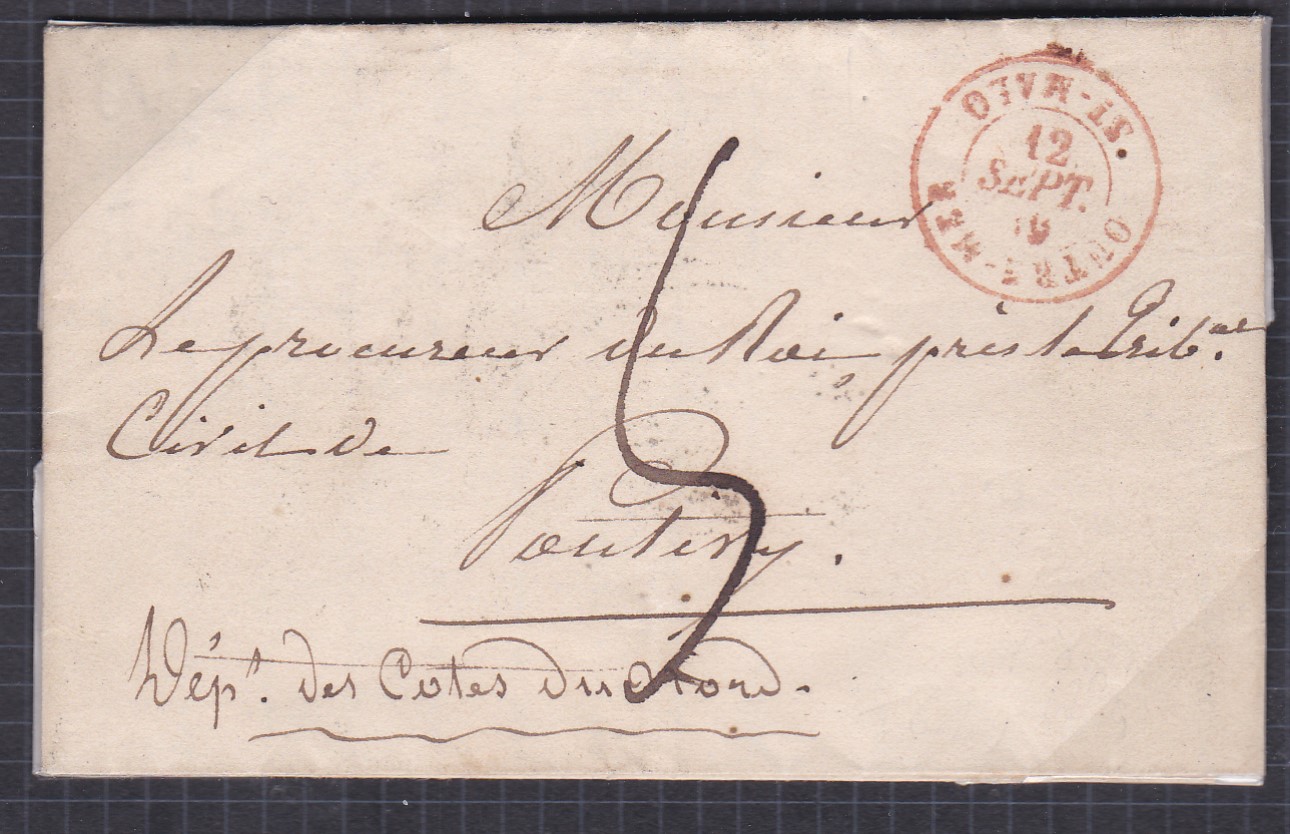 OUTRE-MER ST-MALO.
12
SEPT.
Monsieur
Le procureur du Roi près le Trib.al
Civil de
5
Dépt. des Cotes du Nord.